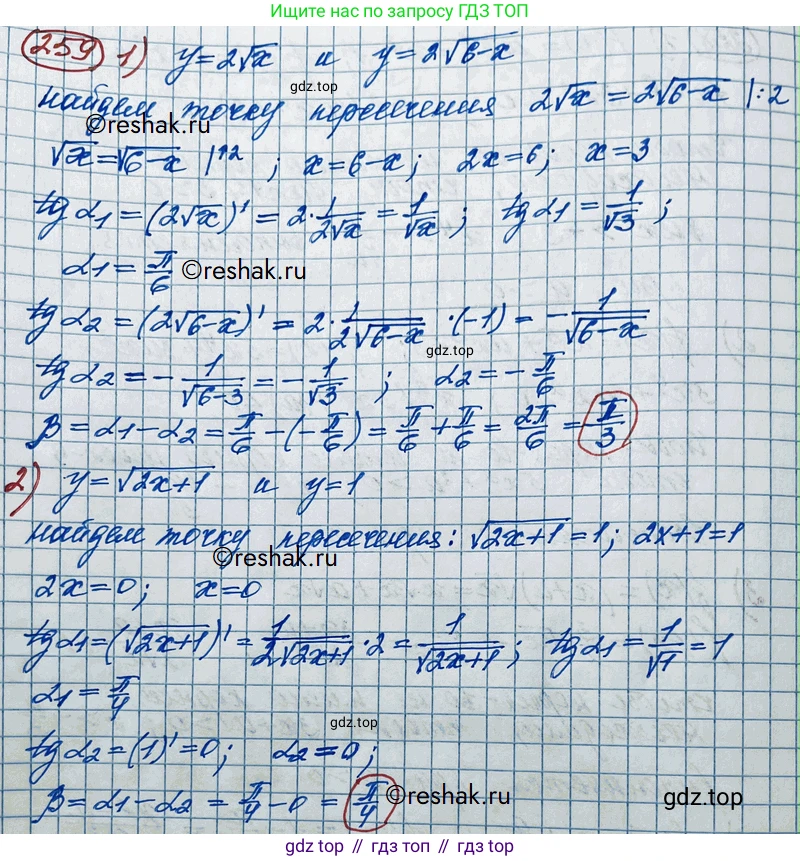 Ищите решения по запросу ГДЗ ТОП
259 1) y=2√x и y=2√(6-x)
gdz.top
найдем точку пересечения 2√x = 2√(6-x) |:2
©reshak.ru
√x=√(6-x) |↑2 ; x=6-x; 2x=6; x=3
tgα1=(2√x)'=2·1/(2√x)=1/√x; tgα1=1/√3;
α1=π/6 ©reshak.ru
tgα2=(2√(6-x))'=2·1/(2√(6-x))·(-1)=-1/√(6-x)
gdz.top
tgα2=-1/√(6-3)=-1/√3; α2=-π/6
β=α1-α2=π/6-(-π/6)=π/6+π/6=2π/6=π/3
2) y=√(2x+1) и y=1
найдем точку пересечения: √(2x+1)=1; 2x+1=1
©reshak.ru
2x=0; x=0
tgα1=(√(2x+1))'=1/(2√(2x+1))·2=1/√(2x+1); tgα1=1/√1=1
α1=π/4
gdz.top
tgα2=(1)'=0; α2=0;
β=α1-α2=π/4-0=π/4 ©reshak.ru
gdz.top
gdz.top // gdz.top // gdz.top